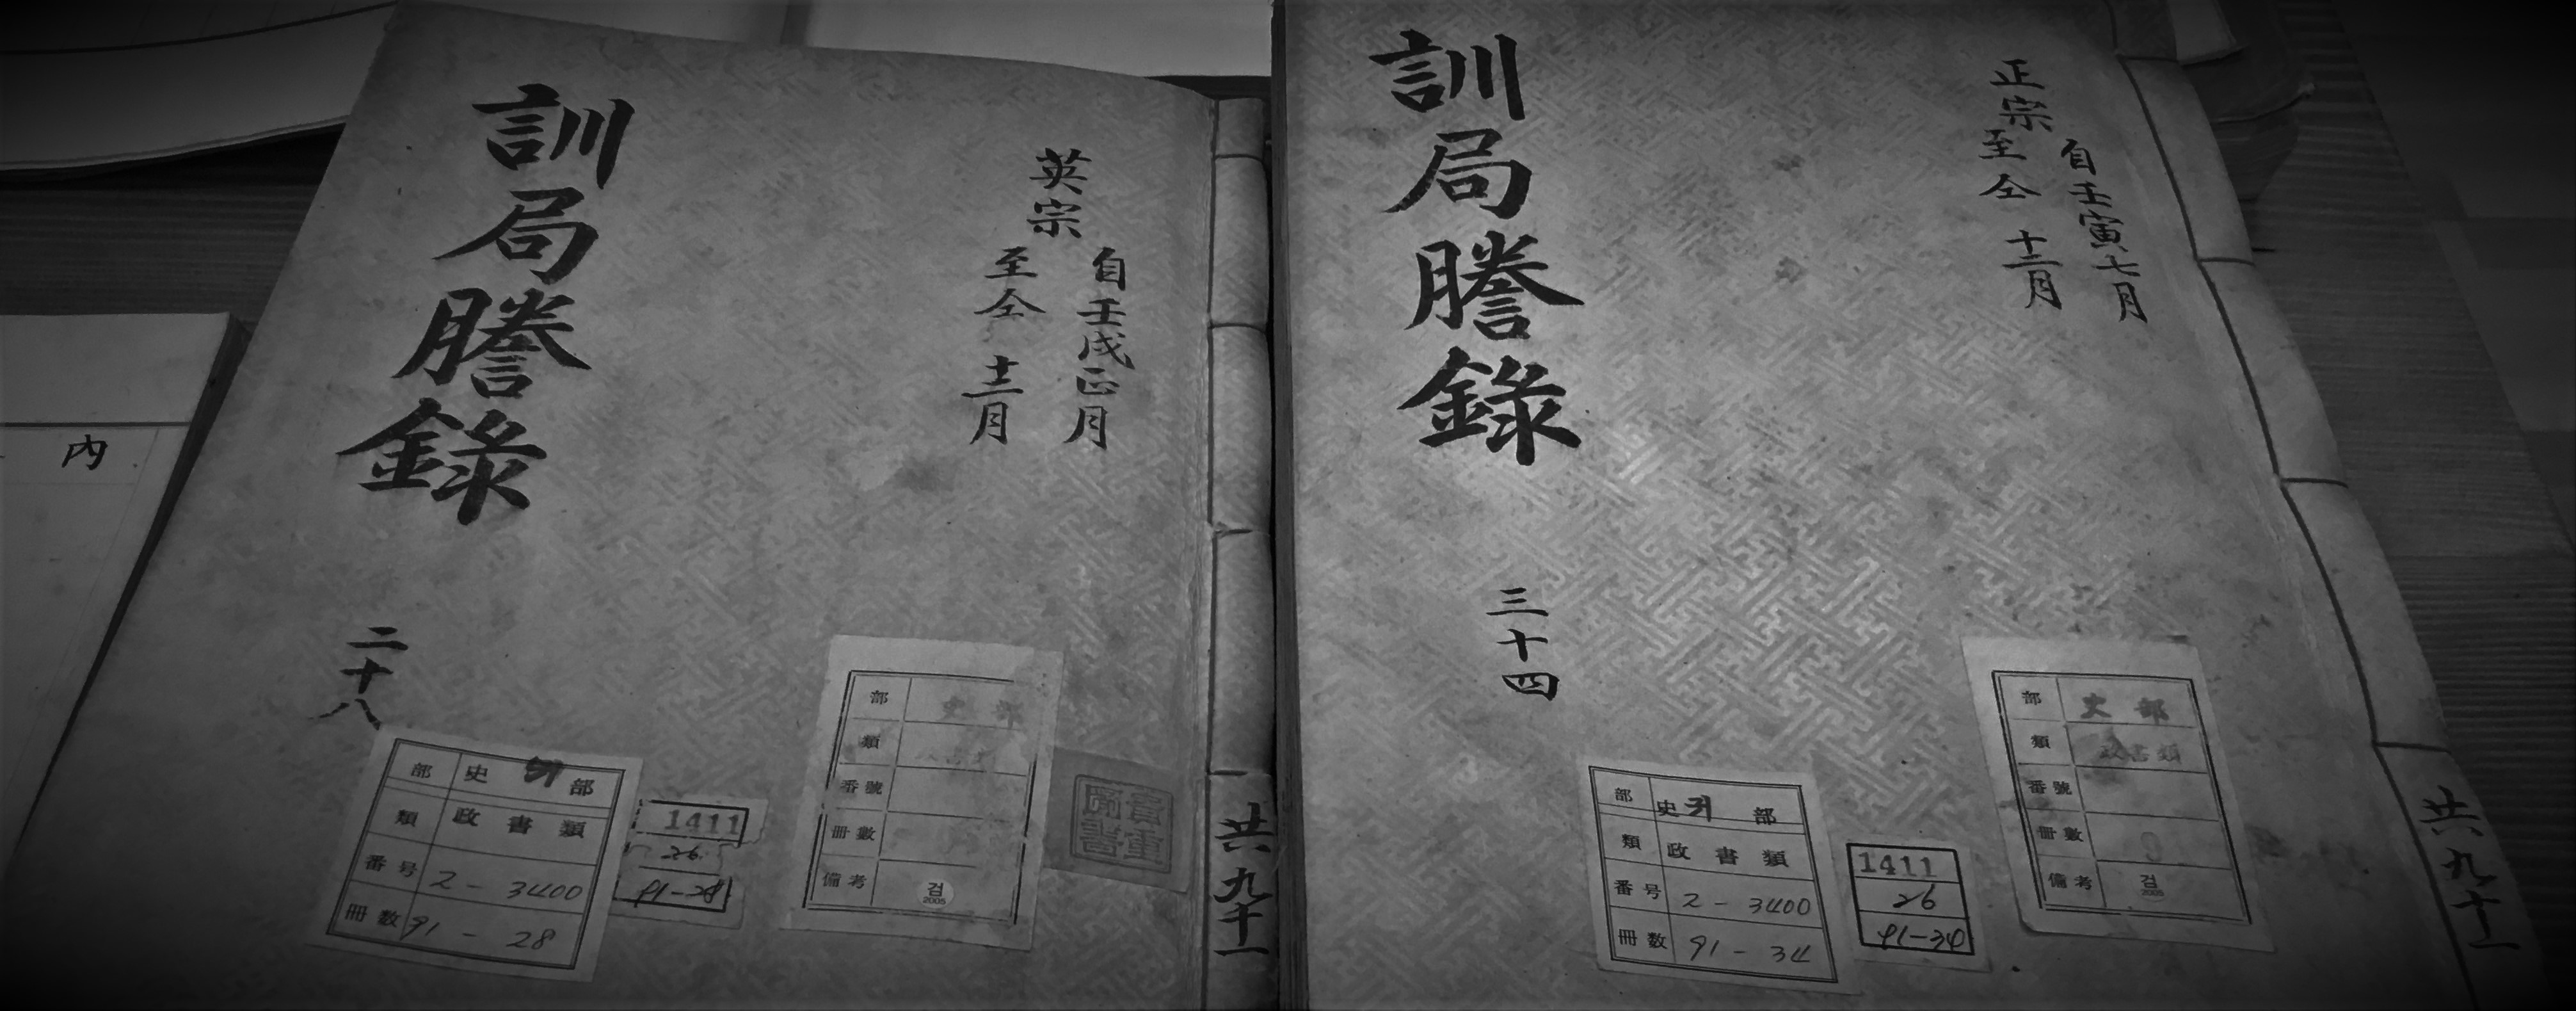 訓局謄錄
二十八
英宗
自壬戌正月
至仝十二月
部 史 部
類 政書類
番号 2-3400
冊数 91-28
1411
26
91-28
部
類
番號
冊數
備考 검
2005
共九十一
訓局謄錄
三十四
正宗
自壬寅七月
至仝十二月
部 史 部
類 政書類
番号 2-3400
冊数 91-34
1411
26
91-34
部 史部
類 政書類
番號
冊數
備考 검
2005
共九十一
內